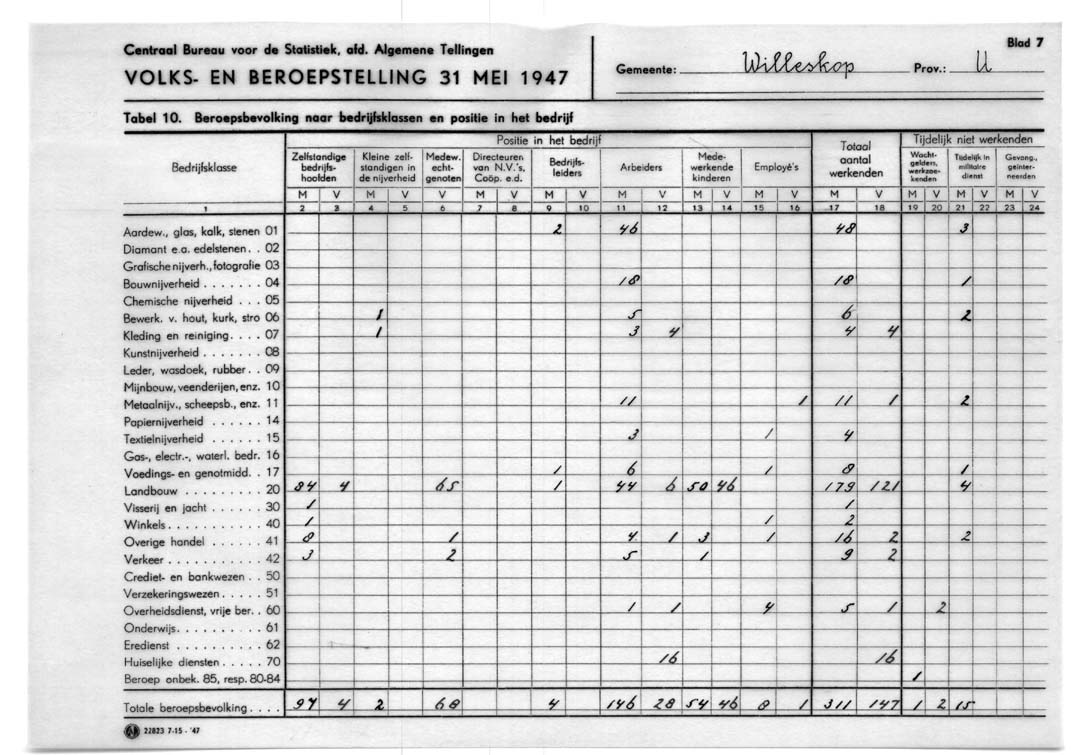 Centraal Bureau voor de Statistiek, afd. Algemene Tellingen
VOLKS- EN BEROEPSTELLING 31 MEI 1947
Blad 7
Gemeente: Willeskop Prov.: U
Tabel 10. Beroepsbevolking naar bedrijfsklassen en positie in het bedrijf
Bedrijfsklasse
Positie in het bedrijf
Zelfstandige bedrijfs-hoofden
Kleine zelf-standigen in de nijverheid
Medew. echt-genoten
Directeuren van N.V.'s, Coöp. e.d.
Bedrijfs-leiders
Arbeiders
Mede-werkende kinderen
Employé's
Totaal aantal werkenden
Tijdelijk niet werkenden
Wacht-gelders, werkzoe-kenden
Tijdelijk in militaire dienst
Gevang., geïnter-neerden
M V M V V M V M V M V M V M V M V M V M V M V
1 2 3 4 5 6 7 8 9 10 11 12 13 14 15 16 17 18 19 20 21 22 23 24
Aardew., glas, kalk, stenen 01 2 46 48 3
Diamant e.a. edelstenen. . 02
Grafische nijverh., fotografie 03
Bouwnijverheid . . . . . . . 04 18 18 1
Chemische nijverheid . . . 05
Bewerk. v. hout, kurk, stro 06 1 5 6 2
Kleding en reiniging. . . . 07 1 3 4 4 4
Kunstnijverheid . . . . . . . 08
Leder, wasdoek, rubber. . 09
Mijnbouw, veenderijen, enz. 10
Metaalnijv., scheepsb., enz. 11 11 1 11 1 2
Papiernijverheid . . . . . . 14
Textielnijverheid . . . . . . 15 3 1 4
Gas-, electr.-, waterl. bedr. 16
Voedings- en genotmidd. . 17 1 6 1 8 1
Landbouw . . . . . . . . . 20 84 4 65 1 44 6 50 46 179 121 4
Visserij en jacht . . . . . . 30 1 1
Winkels . . . . . . . . . . . 40 1 1 2
Overige handel . . . . . . 41 8 1 4 1 3 1 16 2 2
Verkeer . . . . . . . . . . . 42 3 2 5 1 9 2
Crediet- en bankwezen . . 50
Verzekeringswezen . . . . . 51
Overheidsdienst, vrije ber. . 60 1 1 4 5 1 2
Onderwijs. . . . . . . . . . 61
Eredienst . . . . . . . . . . 62
Huiselijke diensten . . . . . 70 16 16
Beroep onbek. 85, resp. 80-84 1
Totale beroepsbevolking . . . . 97 4 2 68 4 146 28 54 46 8 1 311 147 1 2 15
22823 7-15 - '47